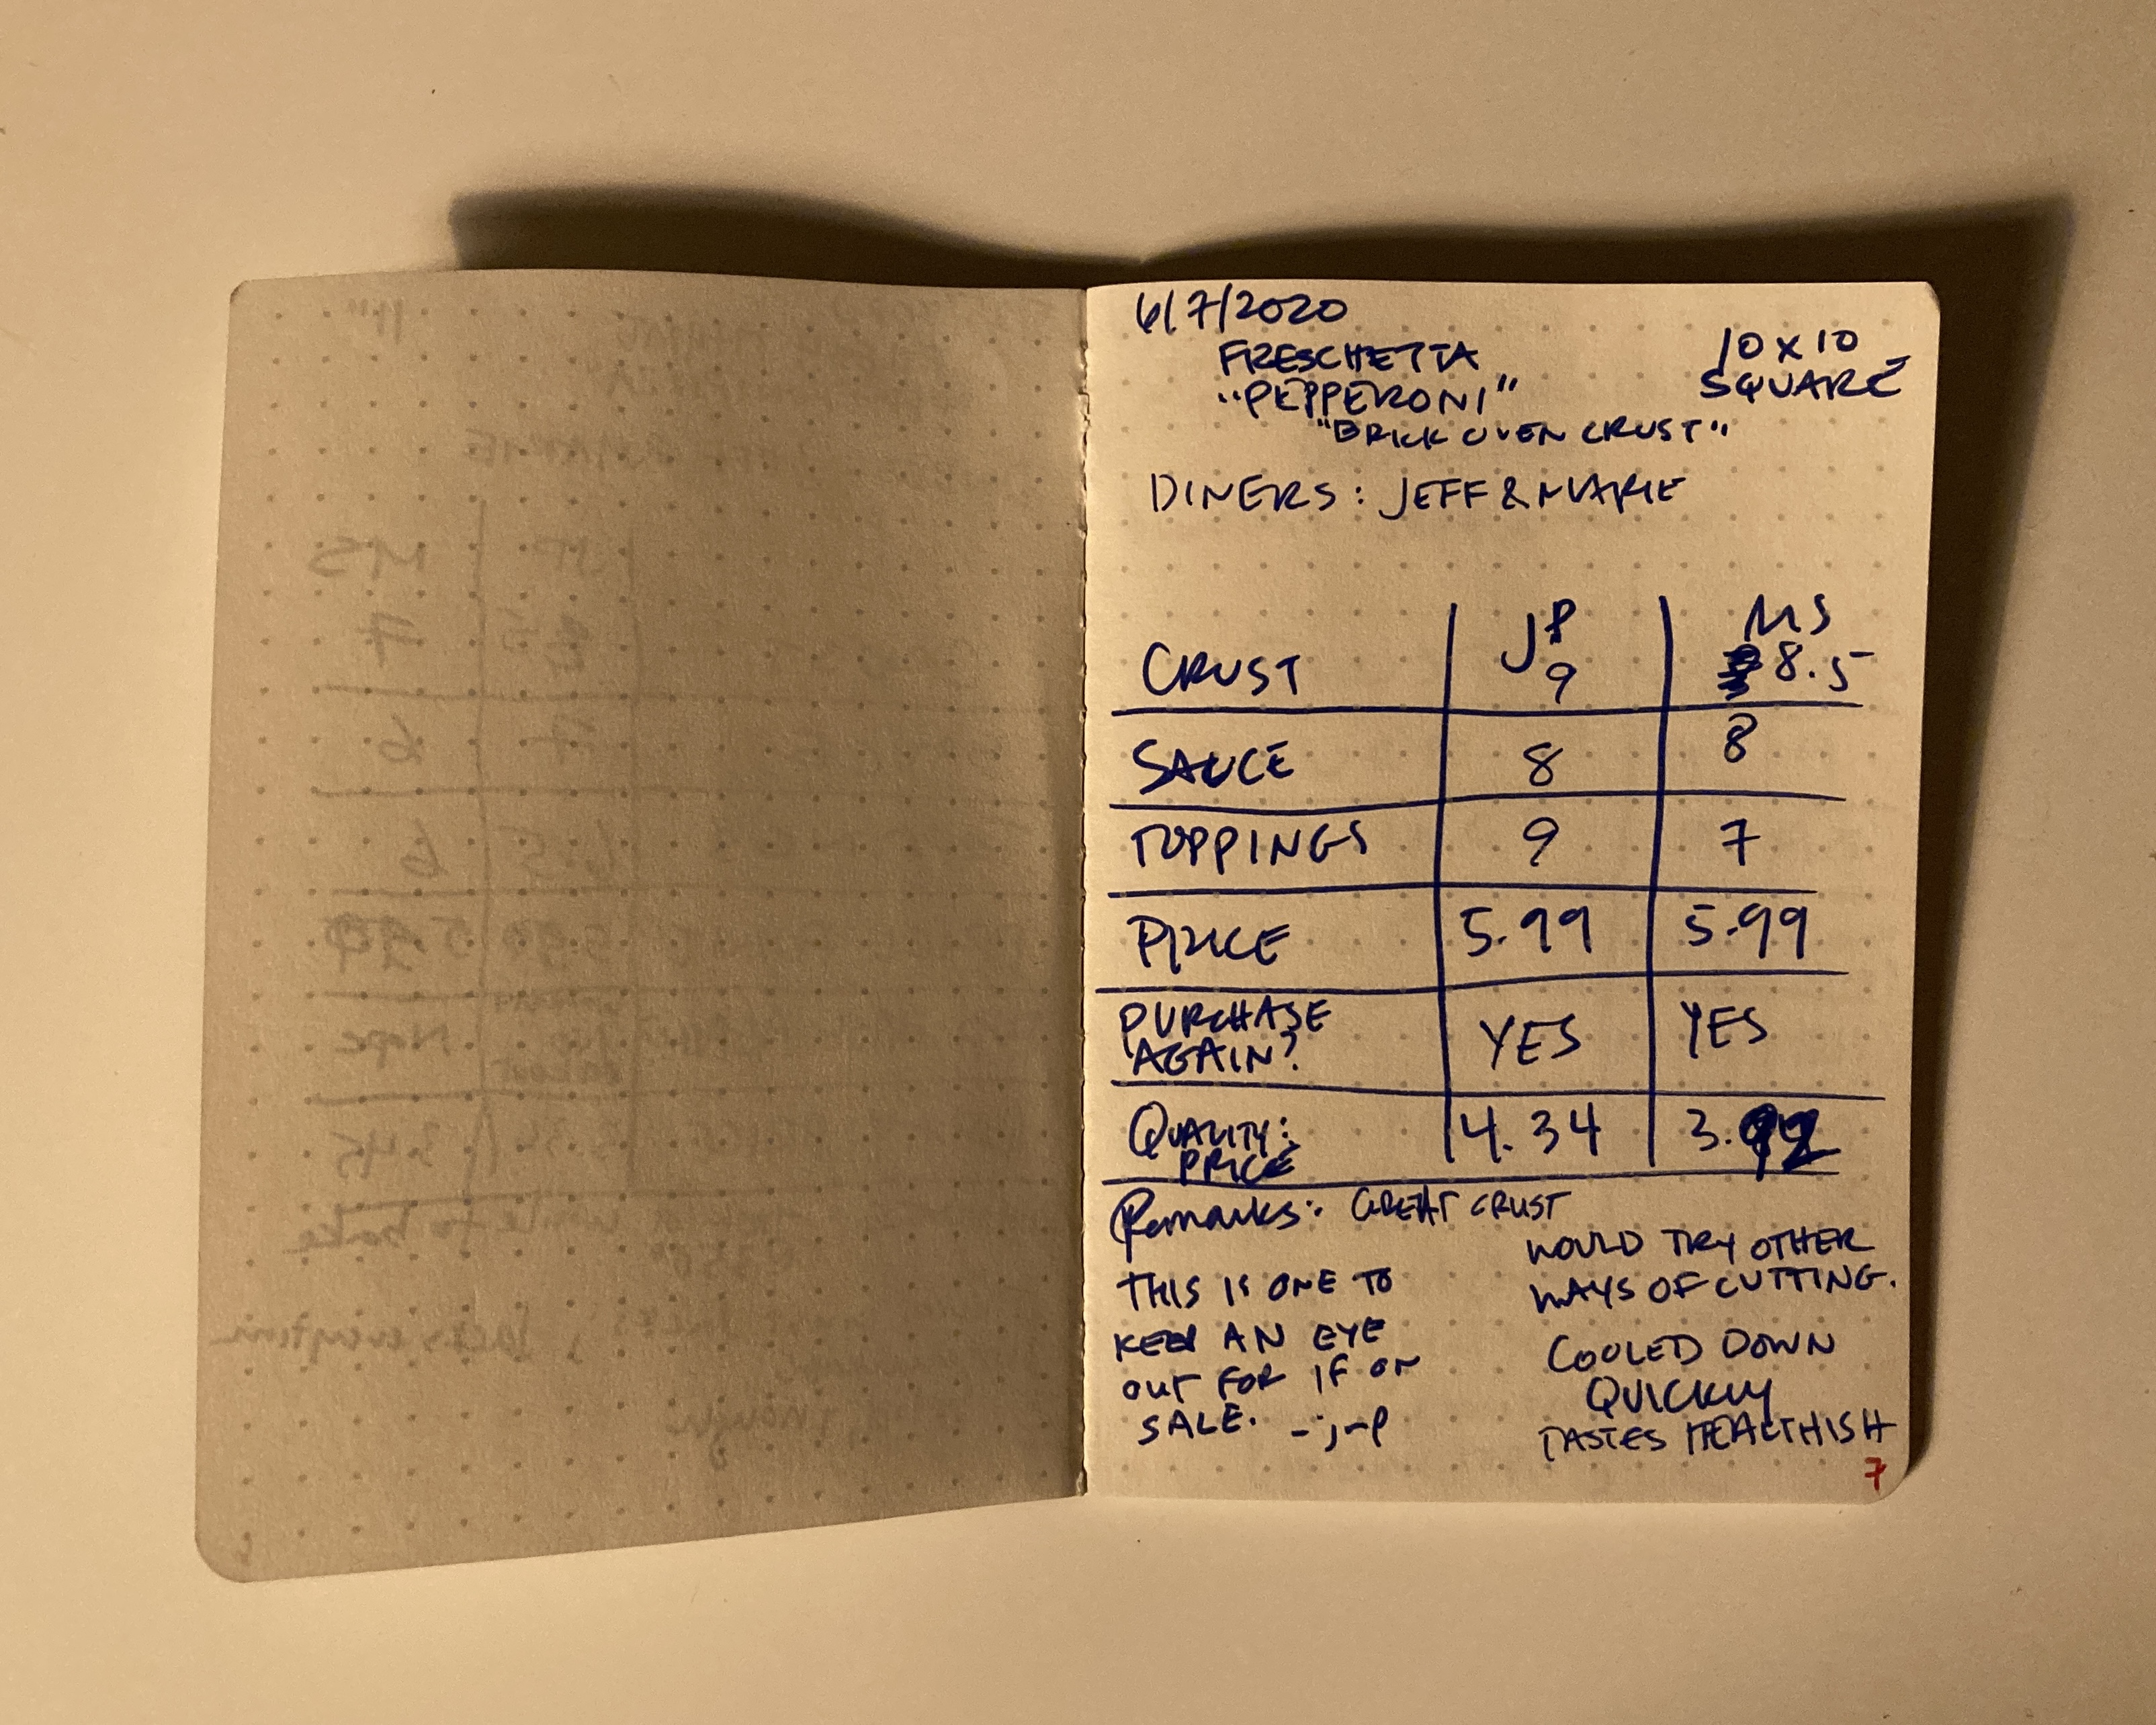 6/7/2020
FRESCHETTA
"PEPPERONI"
"BRICK OVEN CRUST"
10 x 10
SQUARE
DINERS: JEFF & MARIE
JP MS
CRUST 9 8.5
SAUCE 8 8
TOPPINGS 9 7
PRICE 5.99 5.99
PURCHASE
AGAIN? YES YES
QUALITY:
PRICE 4.34 3.92
Remarks: GREAT CRUST
THIS IS ONE TO
KEEP AN EYE
OUT FOR IF ON
SALE. -j-p
WOULD TRY OTHER
WAYS OF CUTTING.
COOLED DOWN
QUICKLY
TASTES HEALTHISH
7